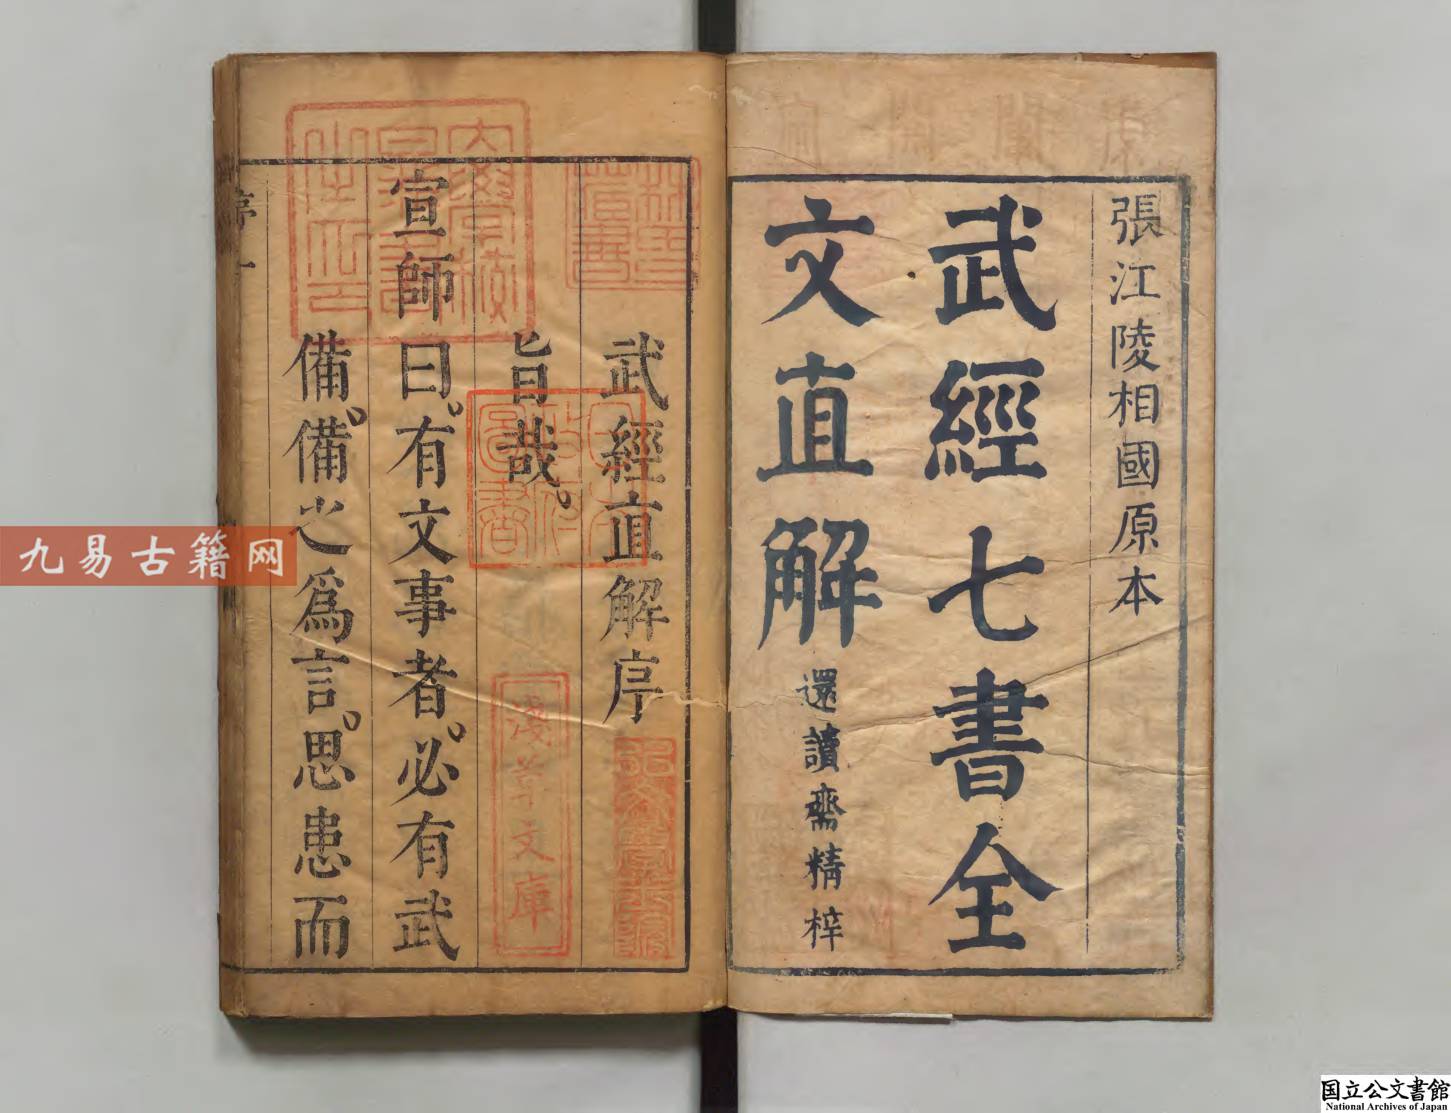 張江陵相國原本
武經七書全
文直解
還讀齋精梓
武經直解序
旨哉。
宣師曰。有文事者。必有武
備。備之爲言。思患而
序 一
林氏藏書
大學校圖書之印
日本政府圖書
淺草文庫
九易古籍网
国立公文書館
National Archives of Japan